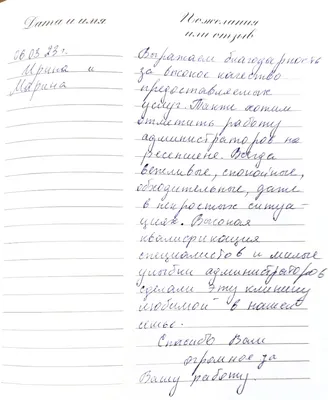 Дата и имя
Пожелания
или отзыв
06.03.23 г.
Ирина и
Марина
Выражаем благодарность
за высокое качество
предоставляемых
услуг. Также хотим
отметить работу
администраторов на
ресепшене. Всегда
вежливые, спокойные,
обходительные, даже
в непростых ситуа-
циях. Высокая
квалификация
специалистов и милые
улыбки администраторов
сделали эту клинику
любимой в нашей
семье.
Спасибо Вам
огромное за
Вашу работу.